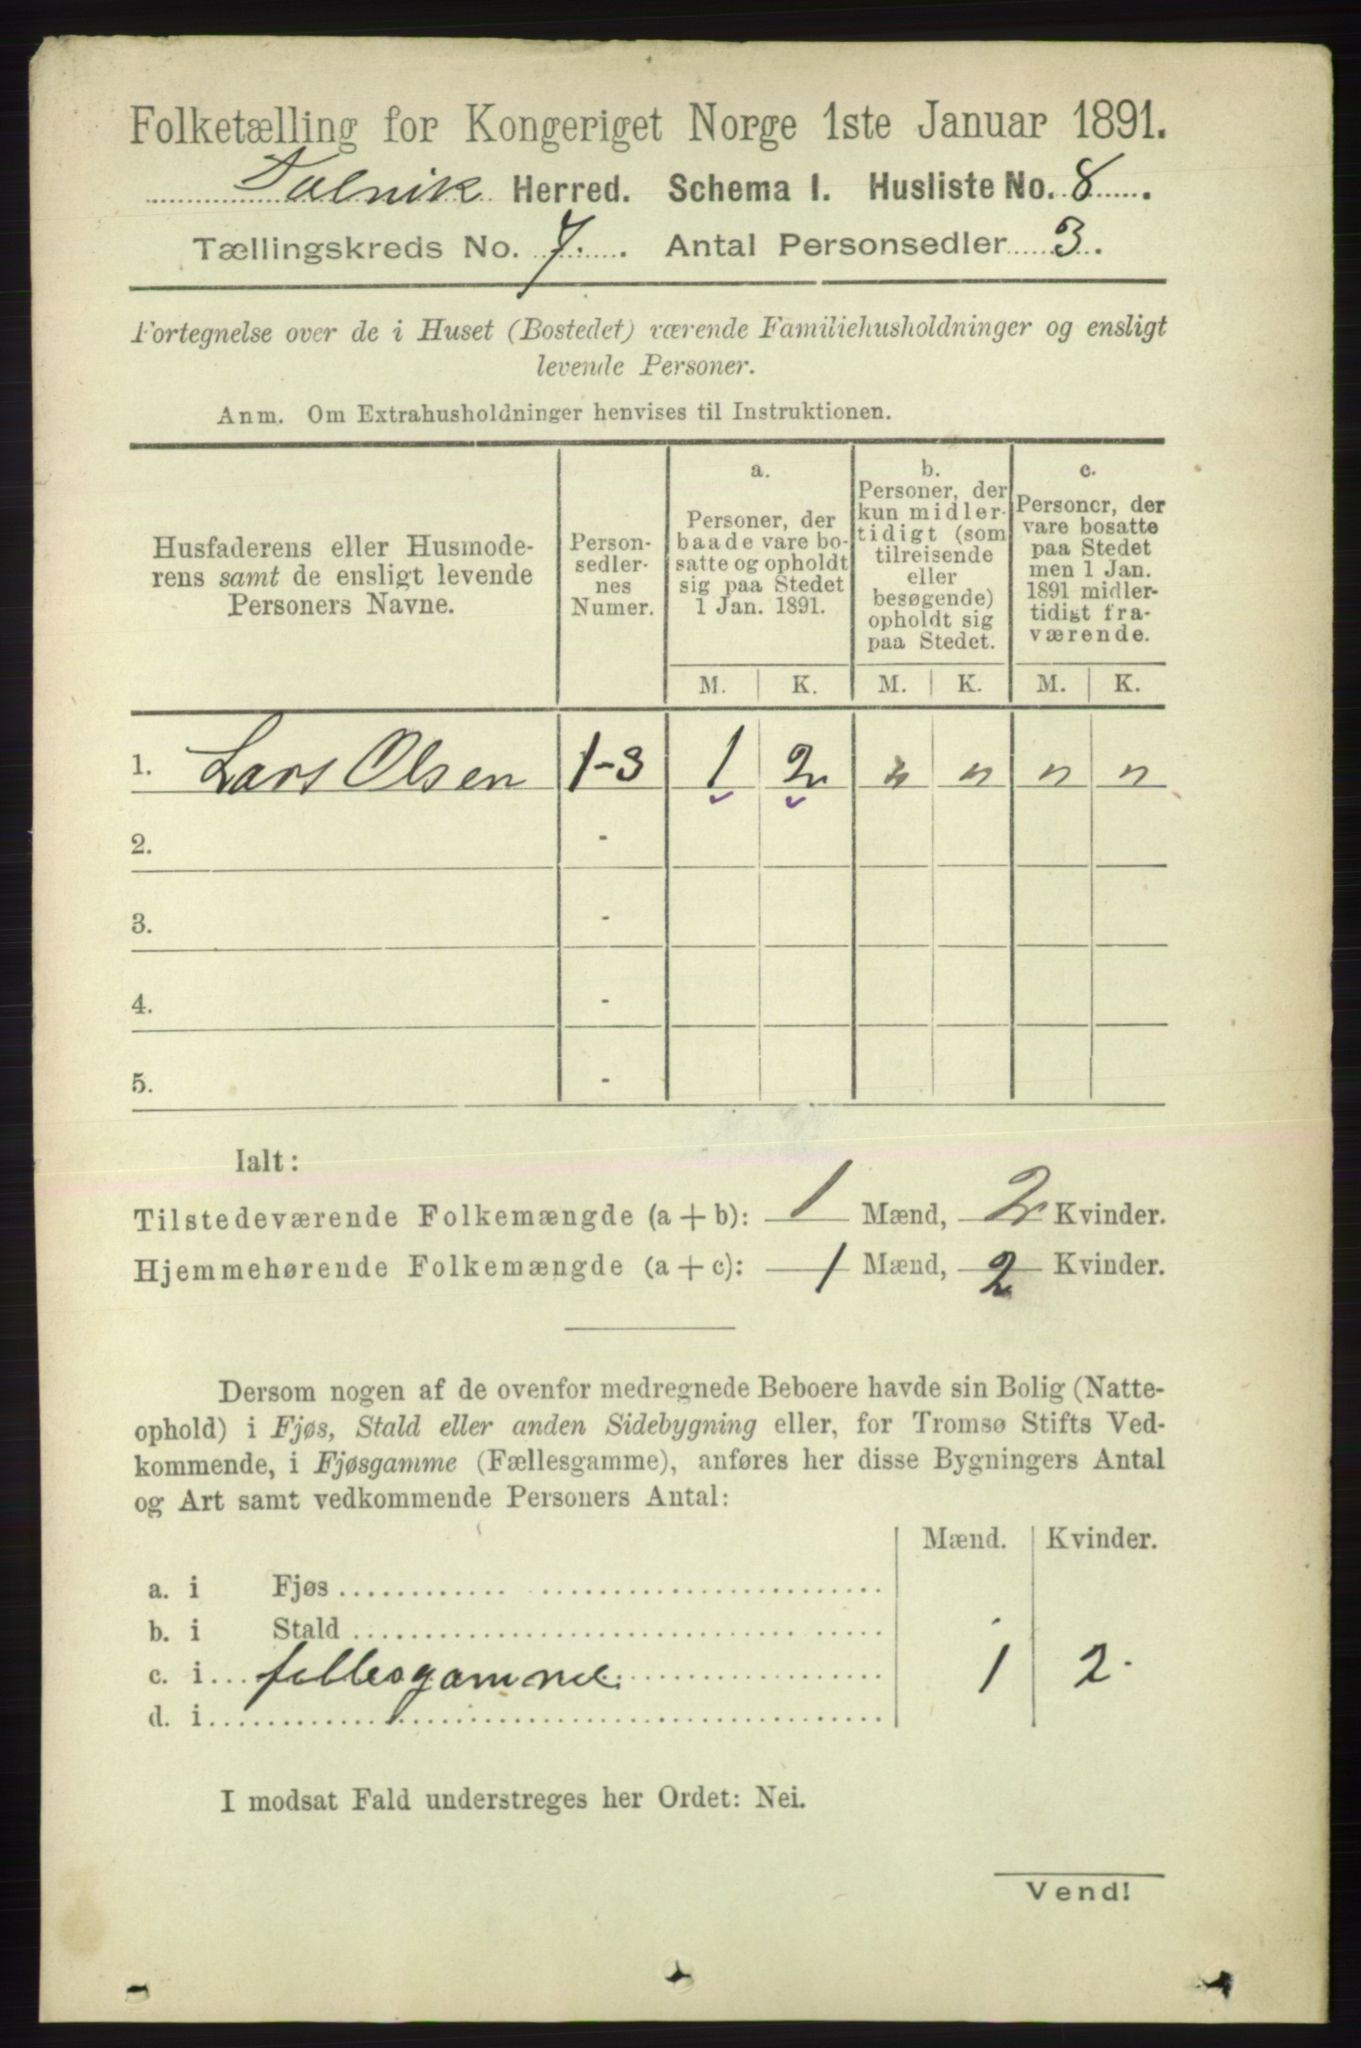 Folketælling for Kongeriget Norge 1ste Januar 1891.
Talvik Herred. Schema I. Husliste No. 8.
Tællingskreds No. 7. Antal Personsedler 3.
Fortegnelse over de i Huset (Bostedet) værende Familiehusholdninger og ensligt
levende Personer.
Anm. Om Extrahusholdninger henvises til Instruktionen.
Husfaderens eller Husmode-
rens samt de ensligt levende
Personers Navne.
Person-
sedler-
nes
Numer.
a.
Personer, der
baade vare bo-
satte og opholdt
sig paa Stedet
1 Jan. 1891.
b.
Personer, der
kun midler-
tidigt (som
tilreisende
eller
besøgende)
opholdt sig
paa Stedet.
c.
Personer, der
vare bosatte
paa Stedet
men 1 Jan.
1891 midler-
tidigt fra-
værende.
M. K. M. K. M. K.
1. Lars Olsen 1-3 1 2 " " " "
2. -
3. -
4. -
5. -
Ialt:
Tilstedeværende Folkemængde (a + b): 1 Mænd, 2 Kvinder.
Hjemmehørende Folkemængde (a + c): 1 Mænd, 2 Kvinder.
Dersom nogen af de ovenfor medregnede Beboere havde sin Bolig (Natte-
ophold) i Fjøs, Stald eller anden Sidebygning eller, for Tromsø Stifts Ved-
kommende, i Fjøsgamme (Fællesgamme), anføres her disse Bygningers Antal
og Art samt vedkommende Personers Antal:
Mænd. Kvinder.
a. i Fjøs
b. i Stald
c. i fellesgamme 1 2
d. i
I modsat Fald understreges her Ordet: Nei.
Vend!